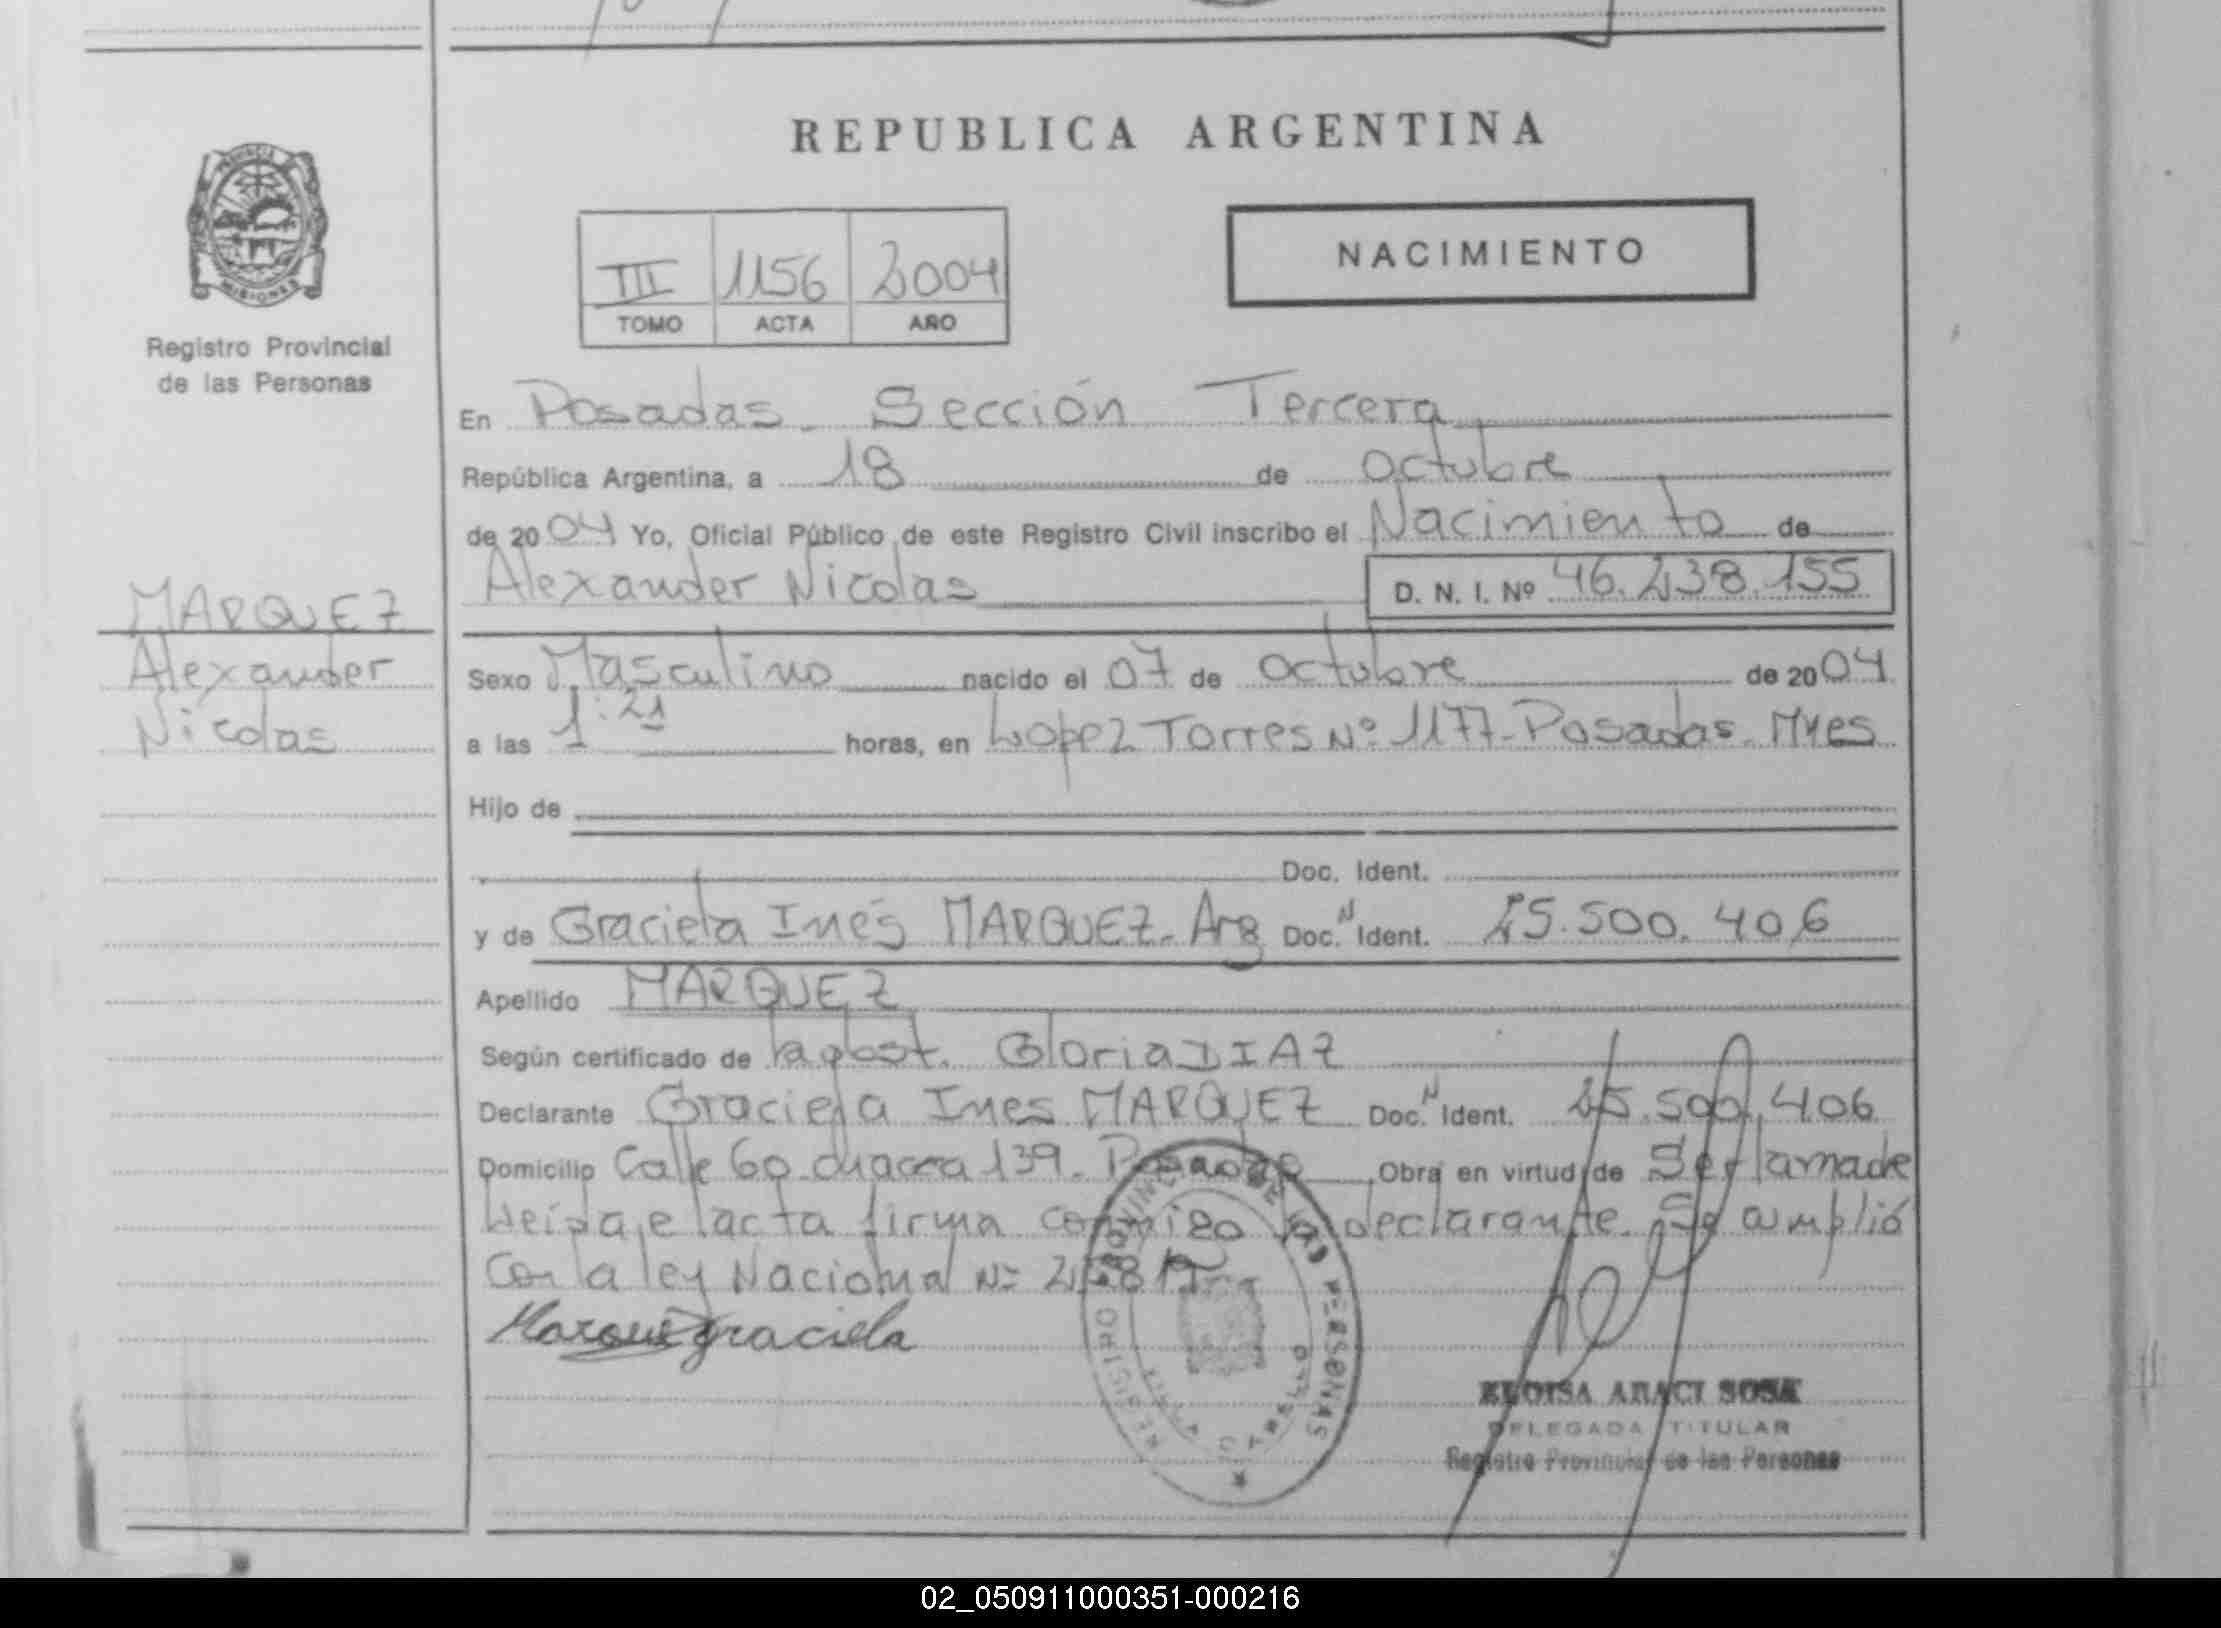 REPUBLICA ARGENTINA
PROVINCIA
MISIONES
Registro Provincial
de las Personas
III 1156 2004
TOMO ACTA AÑO
NACIMIENTO
En Posadas - Sección Tercera
República Argentina, a 18 de octubre
de 2004 Yo, Oficial Público de este Registro Civil inscribo el Nacimiento de
Alexander Nicolas D. N. I. Nº 46.238.155
MARQUEZ
Alexander
Nicolas
Sexo Masculino nacido el 07 de octubre de 2004
a las 1:21 horas, en Lopez Torres Nº 1177-Posadas-Mnes
Hijo de
Doc. Ident.
y de Graciela Inés MARQUEZ- Arg Doc. N Ident. 25.500.406
Apellido MARQUEZ
Según certificado de la obst. Gloria DIAZ
Declarante Graciela Ines MARQUEZ Doc. N Ident. 25.500.406
Domicilio Calle 60 chacra 139- Posadas Obra en virtud de Ser la madre
Leída el acta firma conmigo la declarante. Se amplió
Con la ley Nacional Nº
Marquez graciela
REGISTRO PROVINCIAL DE LAS PERSONAS
ELOISA ARACI SOSA
DELEGADA TITULAR
Registro Provincial de las Personas
02_050911000351-000216